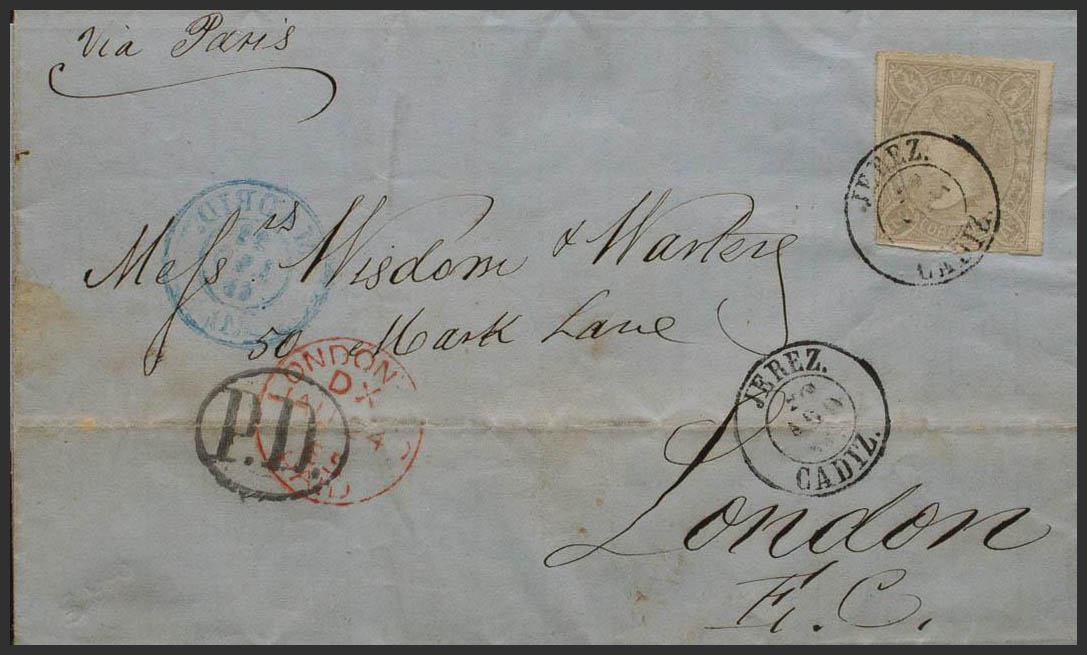 Via Paris
ESPAÑA
JEREZ.
CADYZ.
Mess rs Wisdom & Warter
50 Mark Lane
LONDON
DX
PAID
P.D.
JEREZ.
CADYZ.
London
E.C.